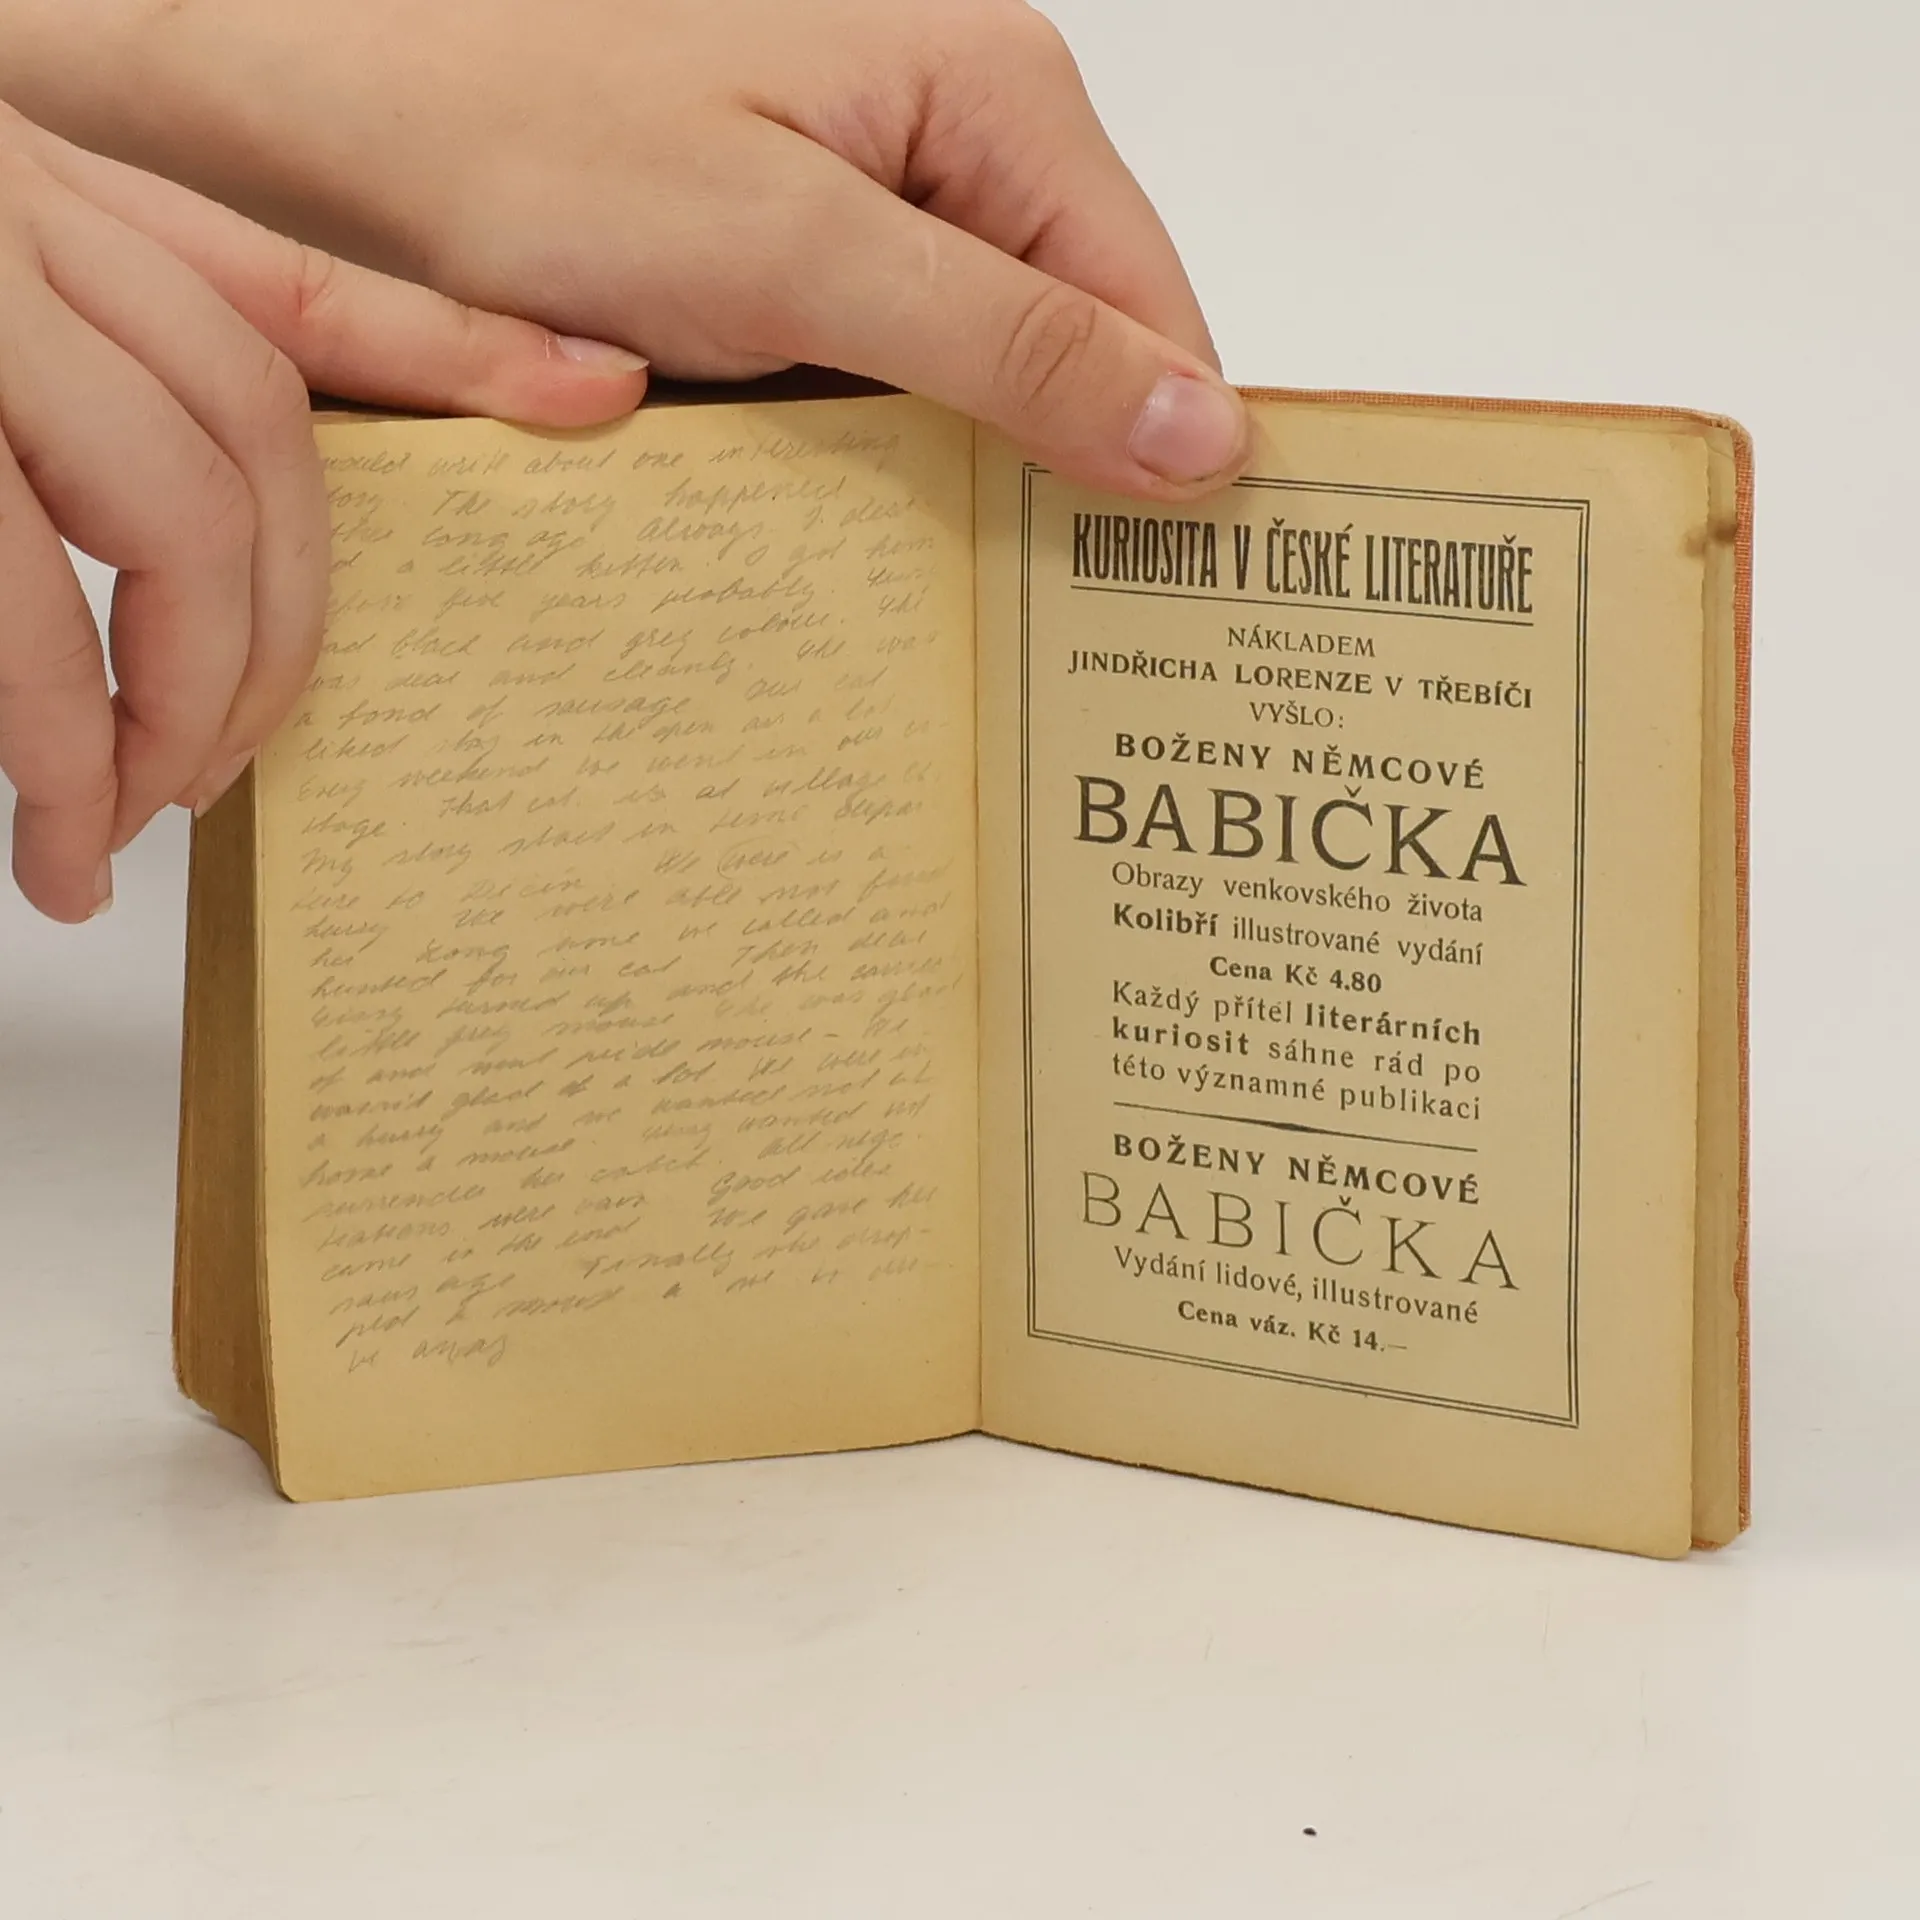 would write about one interesting
The story happened
long ago. Always I
a little kitten. I got
five years probably.
black and grey colour.
was dear and cleanly. She was
a fond of sausage. Our cat
liked in the open air a lot
Every weekend we went in our
That cat at village
My story start in
to Děčín. We were is a
hurry We were able not found
her Long time we called and
hunted for our cat Then dear
turned up and the
little grey mouse She was glad
of and mouse – We
glad of a lot We were in
a hurry and we wanted not
home a mouse. wanted not
surrender her catch. All nego-
tiations were vain Good idea
came in the end We gave her
sausage Finally she drop-
ped a mouse a we
ve away
KURIOSITA V ČESKÉ LITERATUŘE
NÁKLADEM
JINDŘICHA LORENZE V TŘEBÍČI
VYŠLO:
BOŽENY NĚMCOVÉ
BABIČKA
Obrazy venkovského života
Kolibří illustrované vydání
Cena Kč 4.80
Každý přítel literárních
kuriosit sáhne rád po
této významné publikaci
BOŽENY NĚMCOVÉ
BABIČKA
Vydání lidové, illustrované
Cena váz. Kč 14.—